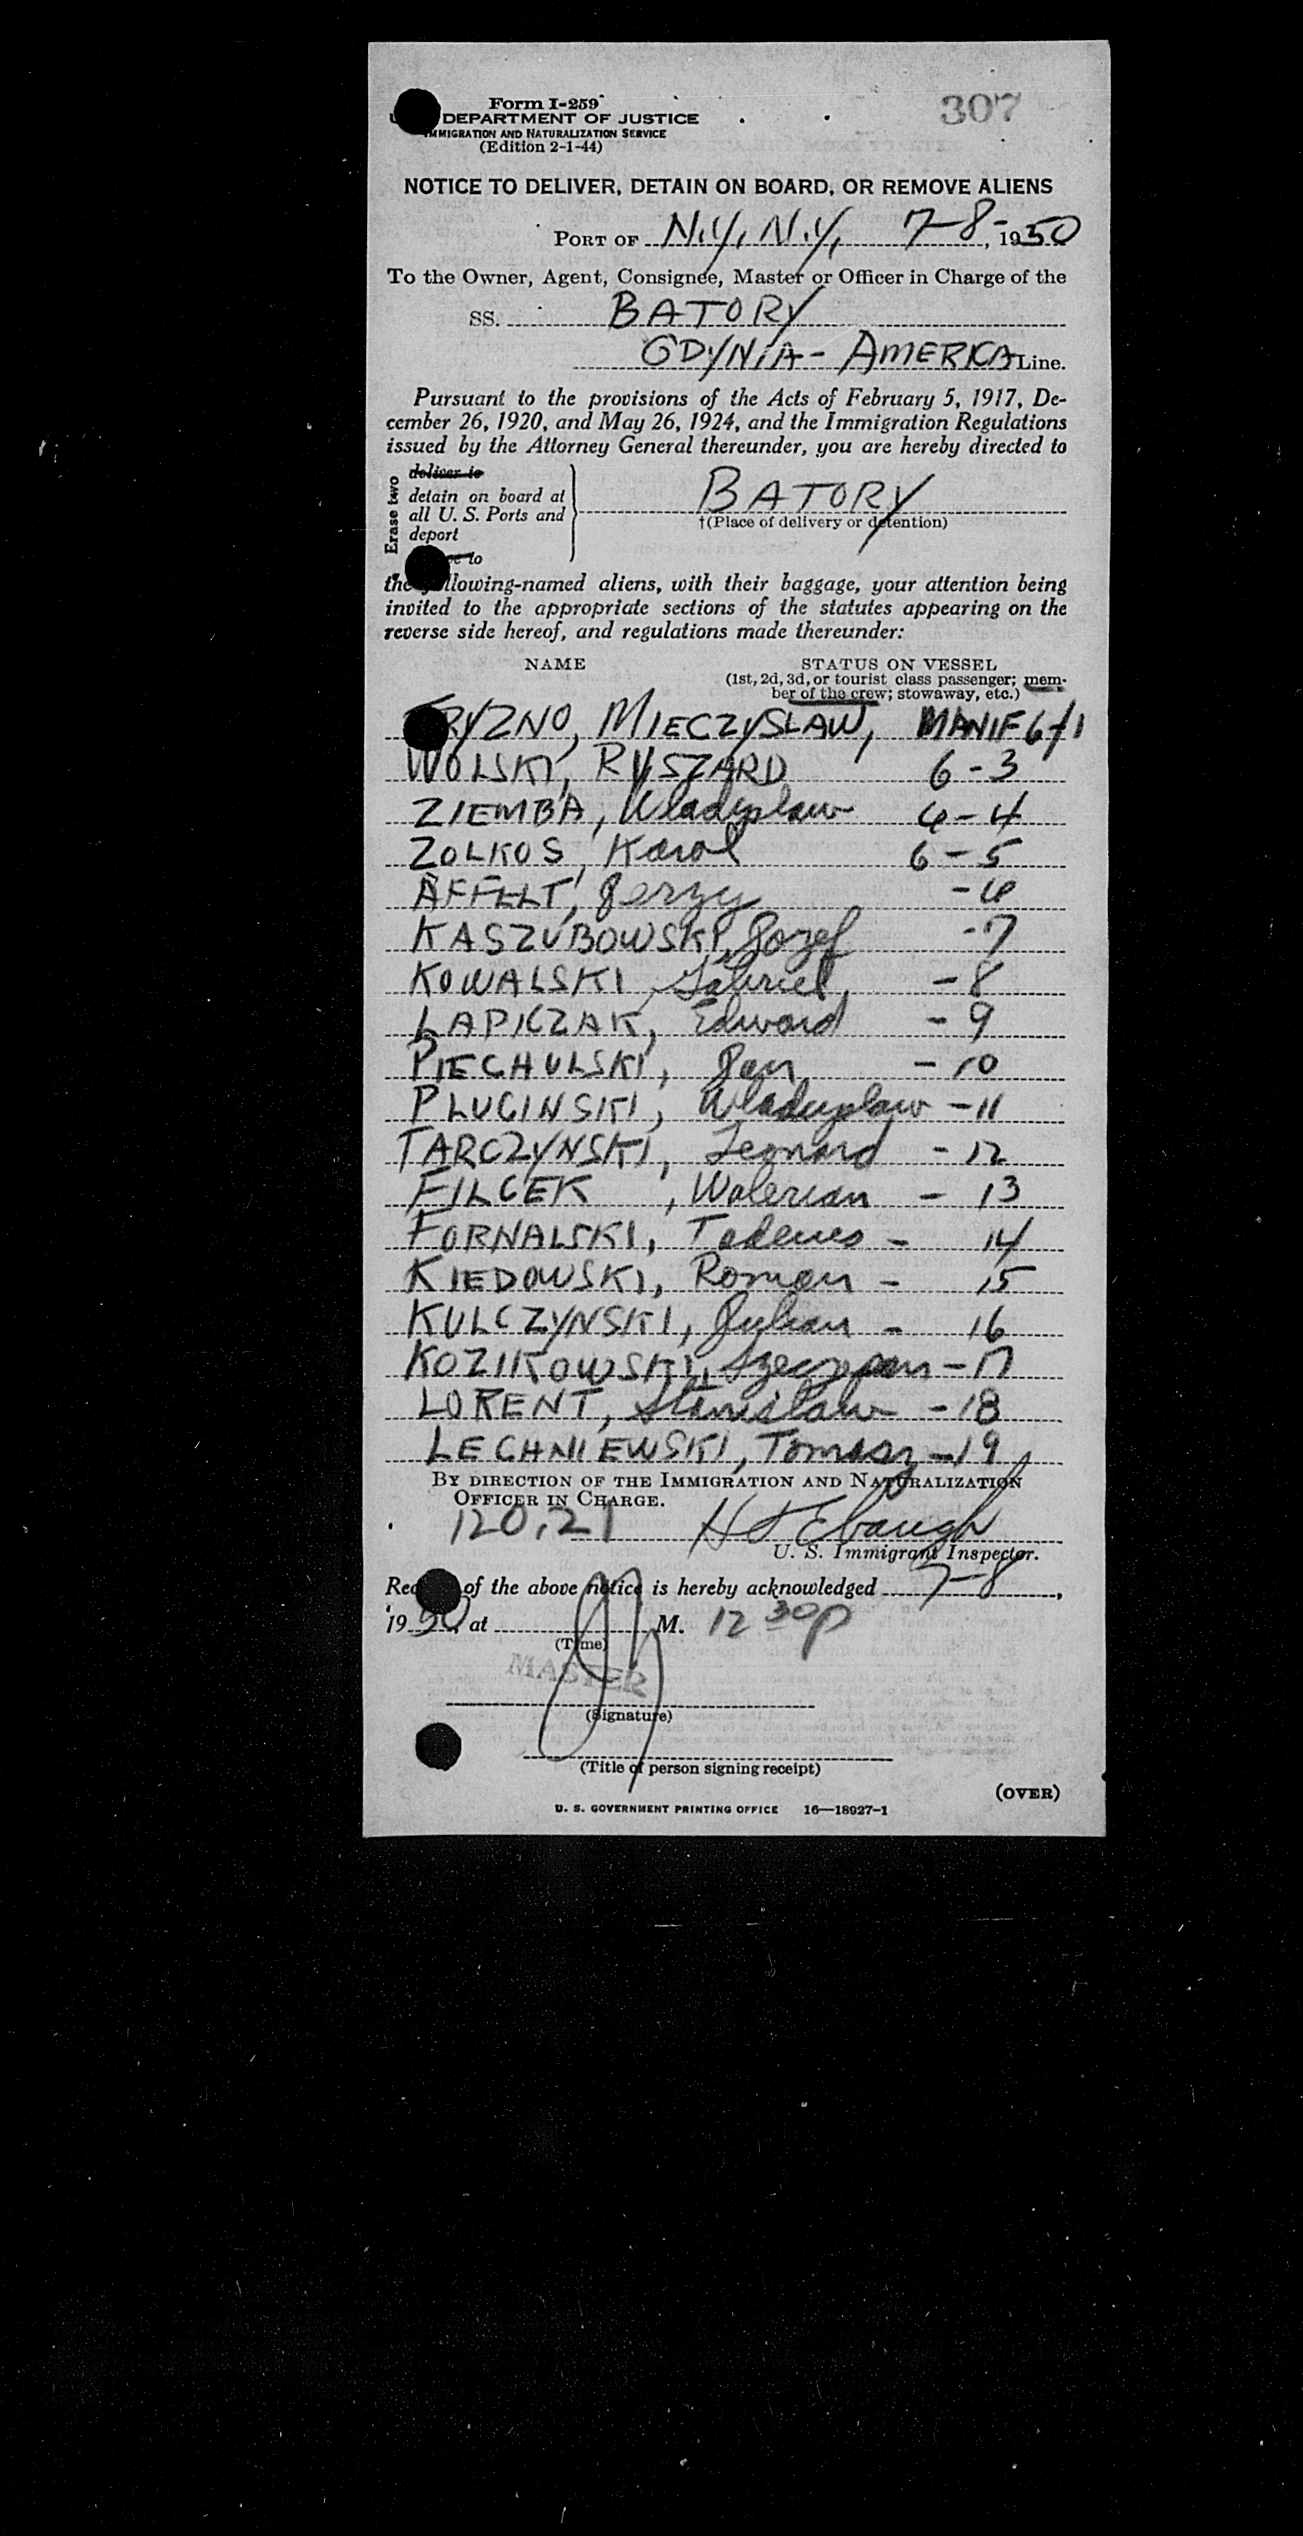 307
Form I-259
DEPARTMENT OF JUSTICE
IMMIGRATION AND NATURALIZATION SERVICE
(Edition 2-1-44)
NOTICE TO DELIVER, DETAIN ON BOARD, OR REMOVE ALIENS
PORT OF N.Y., N.Y, 7-8-, 1950
To the Owner, Agent, Consignee, Master or Officer in Charge of the
SS. BATORY
GDYNIA - AMERICA Line.
Pursuant to the provisions of the Acts of February 5, 1917, De-
cember 26, 1920, and May 26, 1924, and the Immigration Regulations
issued by the Attorney General thereunder, you are hereby directed to
Erase two
deliver to
detain on board at
all U. S. Ports and
deport
to
BATORY
†(Place of delivery or detention)
the following-named aliens, with their baggage, your attention being
invited to the appropriate sections of the statutes appearing on the
reverse side hereof, and regulations made thereunder:
NAME STATUS ON VESSEL
(1st, 2d, 3d, or tourist class passenger; mem-
ber of the crew; stowaway, etc.)
MIECZYSLAW, MANIF 6-1
WOLSKI, RYSZARD 6-3
ZIEMBA, Wladyslaw 6-4
ZOLKOS, Karol 6-5
AFFELT, Jerzy -6
KASZUBOWSKI, Jozef -7
KOWALSKI, Gabriel, -8
LAPICZAK, Edward -9
PIECHULSKI, Jan -10
PLUCINSKI, Wladyslaw -11
TARCZYNSKI, Leonard -12
FILCEK, Walerian -13
FORNALSKI, Tadeus - 14
KIEDOWSKI, Roman - 15
KULCZYNSKI, Julian - 16
KOZIKOWSKI, Szczepan -17
LORENT, Stanislaw -18
LECHNIEWSKI, Tomasz -19
BY DIRECTION OF THE IMMIGRATION AND NATURALIZATION
OFFICER IN CHARGE.
120.21 Ebaugh
U. S. Immigrant Inspector.
of the above notice is hereby acknowledged 7-8,
1950, at M. 12 30p
(Time)
MASTER
(Signature)
(Title of person signing receipt)
(OVER)
U. S. GOVERNMENT PRINTING OFFICE 16—18927-1